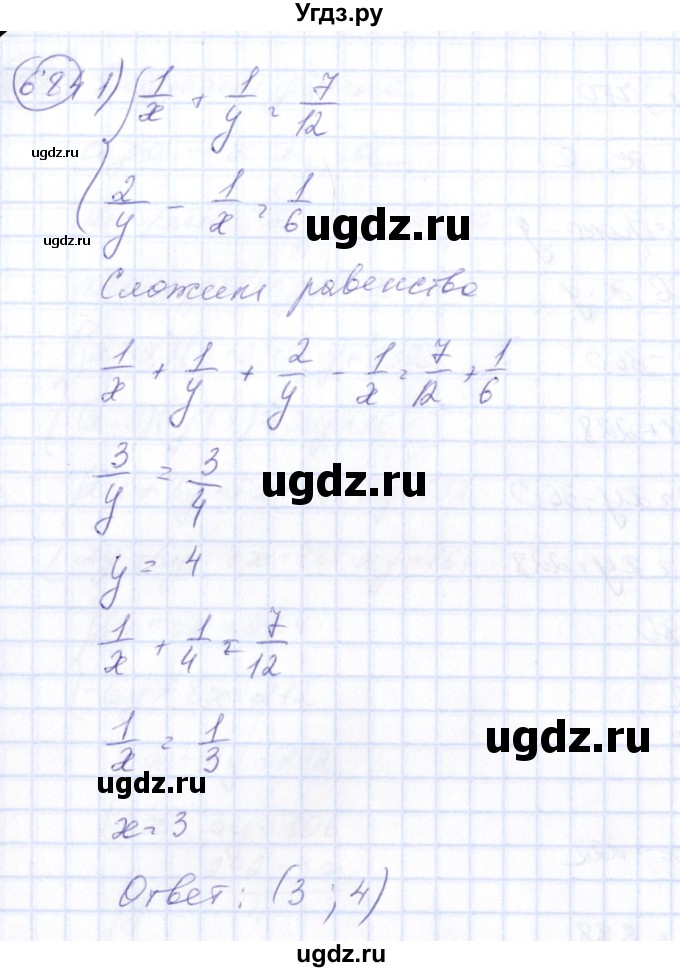 Угдз.ру
684 1) { 1/x + 1/y = 7/12
ugdz.ru
2/y - 1/x = 1/6
ugdz.ru
ugdz.ru
Сложим равенства
1/x + 1/y + 2/y - 1/x = 7/12 + 1/6
3/y = 3/4
ugdz.ru
y = 4
1/x + 1/4 = 7/12
1/x = 1/3
ugdz.ru
ugdz.ru
x = 3
Ответ: (3 ; 4)
ugdz.ru